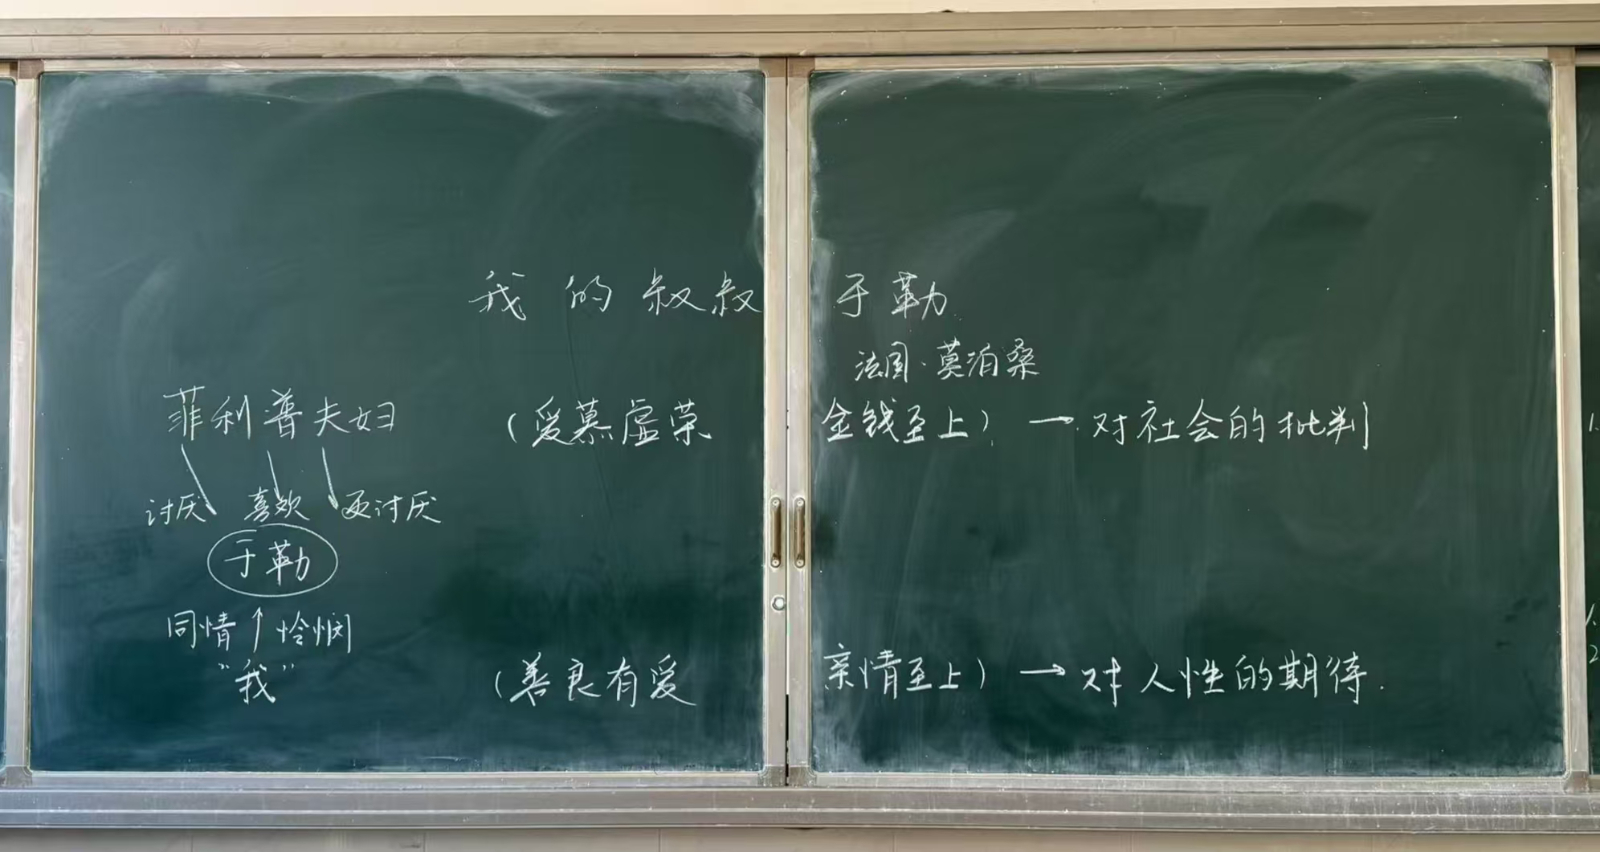 我的叔叔于勒
法国·莫泊桑
菲利普夫妇 (爱慕虚荣 金钱至上) → 对社会的批判
讨厌 喜欢 更讨厌
于勒
同情 ↑ 怜悯
“我” (善良有爱 亲情至上) → 对人性的期待.